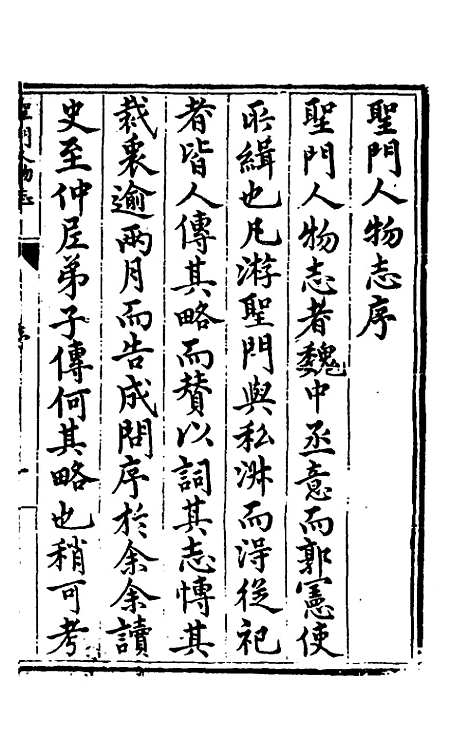 聖門人物志序
聖門人物志者魏中丞意而郭憲使
所緝也凡游聖門與私淑而得從祀
者皆人傳其略而贊以詞其志慱其
裁衷逾兩月而告成問序於余余讀
史至仲尼弟子傳何其略也稍可考
聖門人物志